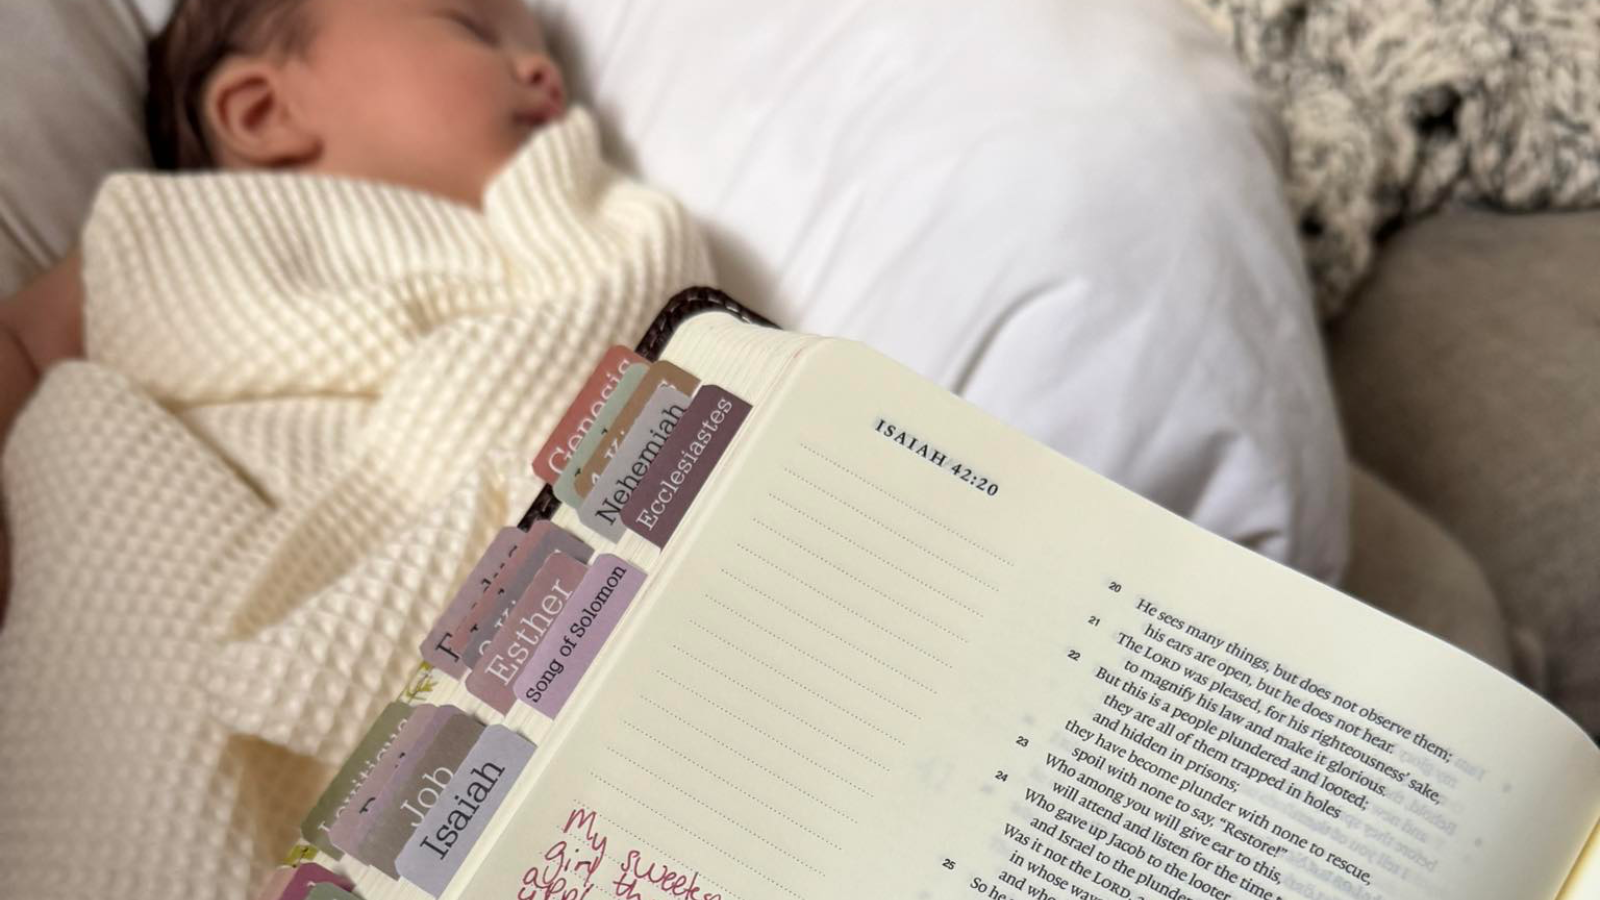 Genesis
Nehemiah
Ecclesiastes
Esther
Song of Solomon
Job
Isaiah
ISAIAH 42:20
20 He sees many things, but does not observe them;
his ears are open, but he does not hear.
21 The LORD was pleased, for his righteousness' sake,
to magnify his law and make it glorious.
22 But this is a people plundered and looted;
they are all of them trapped in holes
and hidden in prisons;
they have become plunder with none to rescue,
spoil with none to say, "Restore!"
23 Who among you will give ear to this,
will attend and listen for the time
24 Who gave up Jacob to the looter
and Israel to the plunder
Was it not the LORD,
in whose
and who
25 So he
My
girl